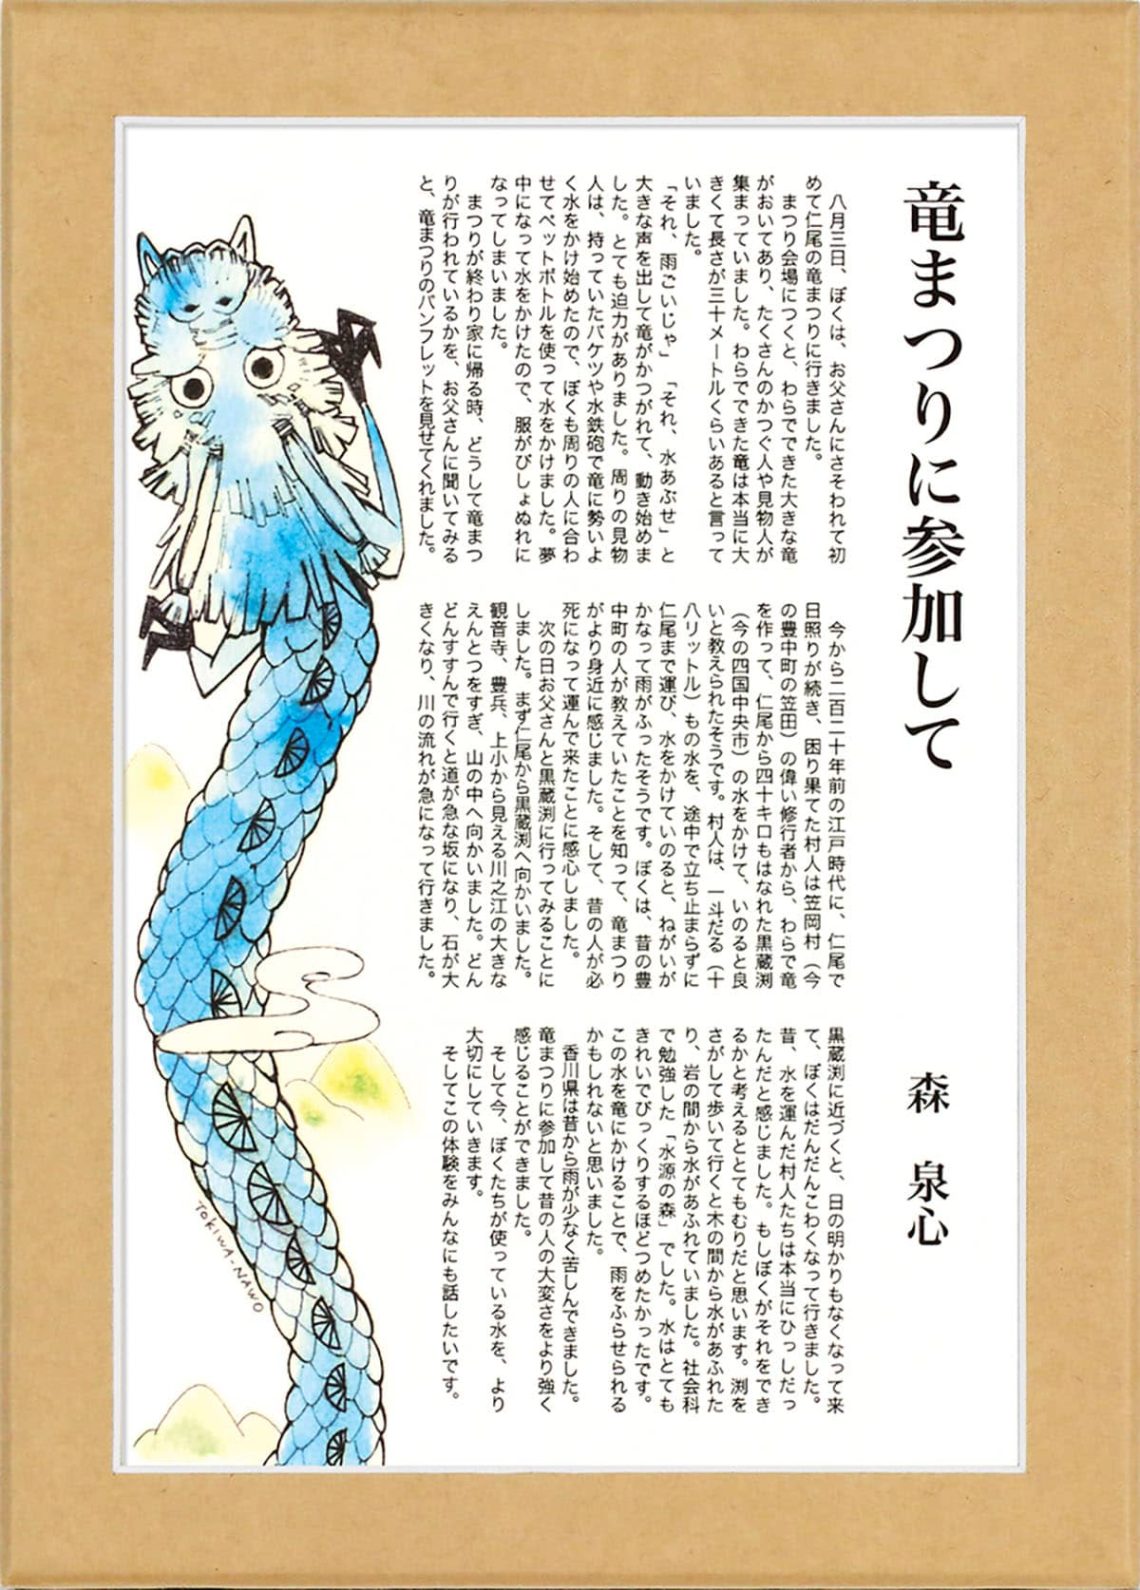 竜まつりに参加して
森　泉心
　八月三日、ぼくは、お父さんにさそわれて初
めて仁尾の竜まつりに行きました。
　まつり会場につくと、わらでできた大きな竜
がおいてあり、たくさんのかつぐ人や見物人が
集まっていました。わらでできた竜は本当に大
きくて長さが三十メートルくらいあると言って
いました。
「それ、雨ごいじゃ」「それ、水あぶせ」と
大きな声を出して竜がかつがれて、動き始めま
した。とても迫力がありました。周りの見物
人は、持っていたバケツや水鉄砲で竜に勢いよ
く水をかけ始めたので、ぼくも周りの人に合わ
せてペットボトルを使って水をかけました。夢
中になって水をかけたので、服がびしょぬれに
なってしまいました。
　まつりが終わり家に帰る時、どうして竜まつ
りが行われているかを、お父さんに聞いてみる
と、竜まつりのパンフレットを見せてくれました。
　今から二百二十年前の江戸時代に、仁尾で
日照りが続き、困り果てた村人は笠岡村（今
の豊中町の笠田）の偉い修行者から、わらで竜
を作って、仁尾から四十キロもはなれた黒蔵渕
（今の四国中央市）の水をかけて、いのると良
いと教えられたそうです。村人は、一斗だる（十
八リットル）もの水を、途中で立ち止まらずに
仁尾まで運び、水をかけていのると、ねがいが
かなって雨がふったそうです。ぼくは、昔の豊
中町の人が教えていたことを知って、竜まつり
がより身近に感じました。そして、昔の人が必
死になって運んで来たことに感心しました。
　次の日お父さんと黒蔵渕に行ってみることに
しました。まず仁尾から黒蔵渕へ向かいました。
観音寺、豊兵、上小から見える川之江の大きな
えんとつをすぎ、山の中へ向かいました。どん
どんすすんで行くと道が急な坂になり、石が大
きくなり、川の流れが急になって行きました。
黒蔵渕に近づくと、日の明かりもなくなって来
て、ぼくはだんだんこわくなって行きました。
昔、水を運んだ村人たちは本当にひっしだっ
たんだと感じました。もしぼくがそれをでき
るかと考えるととてもむりだと思います。渕を
さがして歩いて行くと木の間から水があふれた
り、岩の間から水があふれていました。社会科
で勉強した「水源の森」でした。水はとても
きれいでびっくりするほどつめたかったです。
この水を竜にかけることで、雨をふらせられる
かもしれないと思いました。
　香川県は昔から雨が少なく苦しんできました。
竜まつりに参加して昔の人の大変さをより強く
感じることができました。
　そして今、ぼくたちが使っている水を、より
大切にしていきます。
　そしてこの体験をみんなにも話したいです。
TOKIWA-NAWO